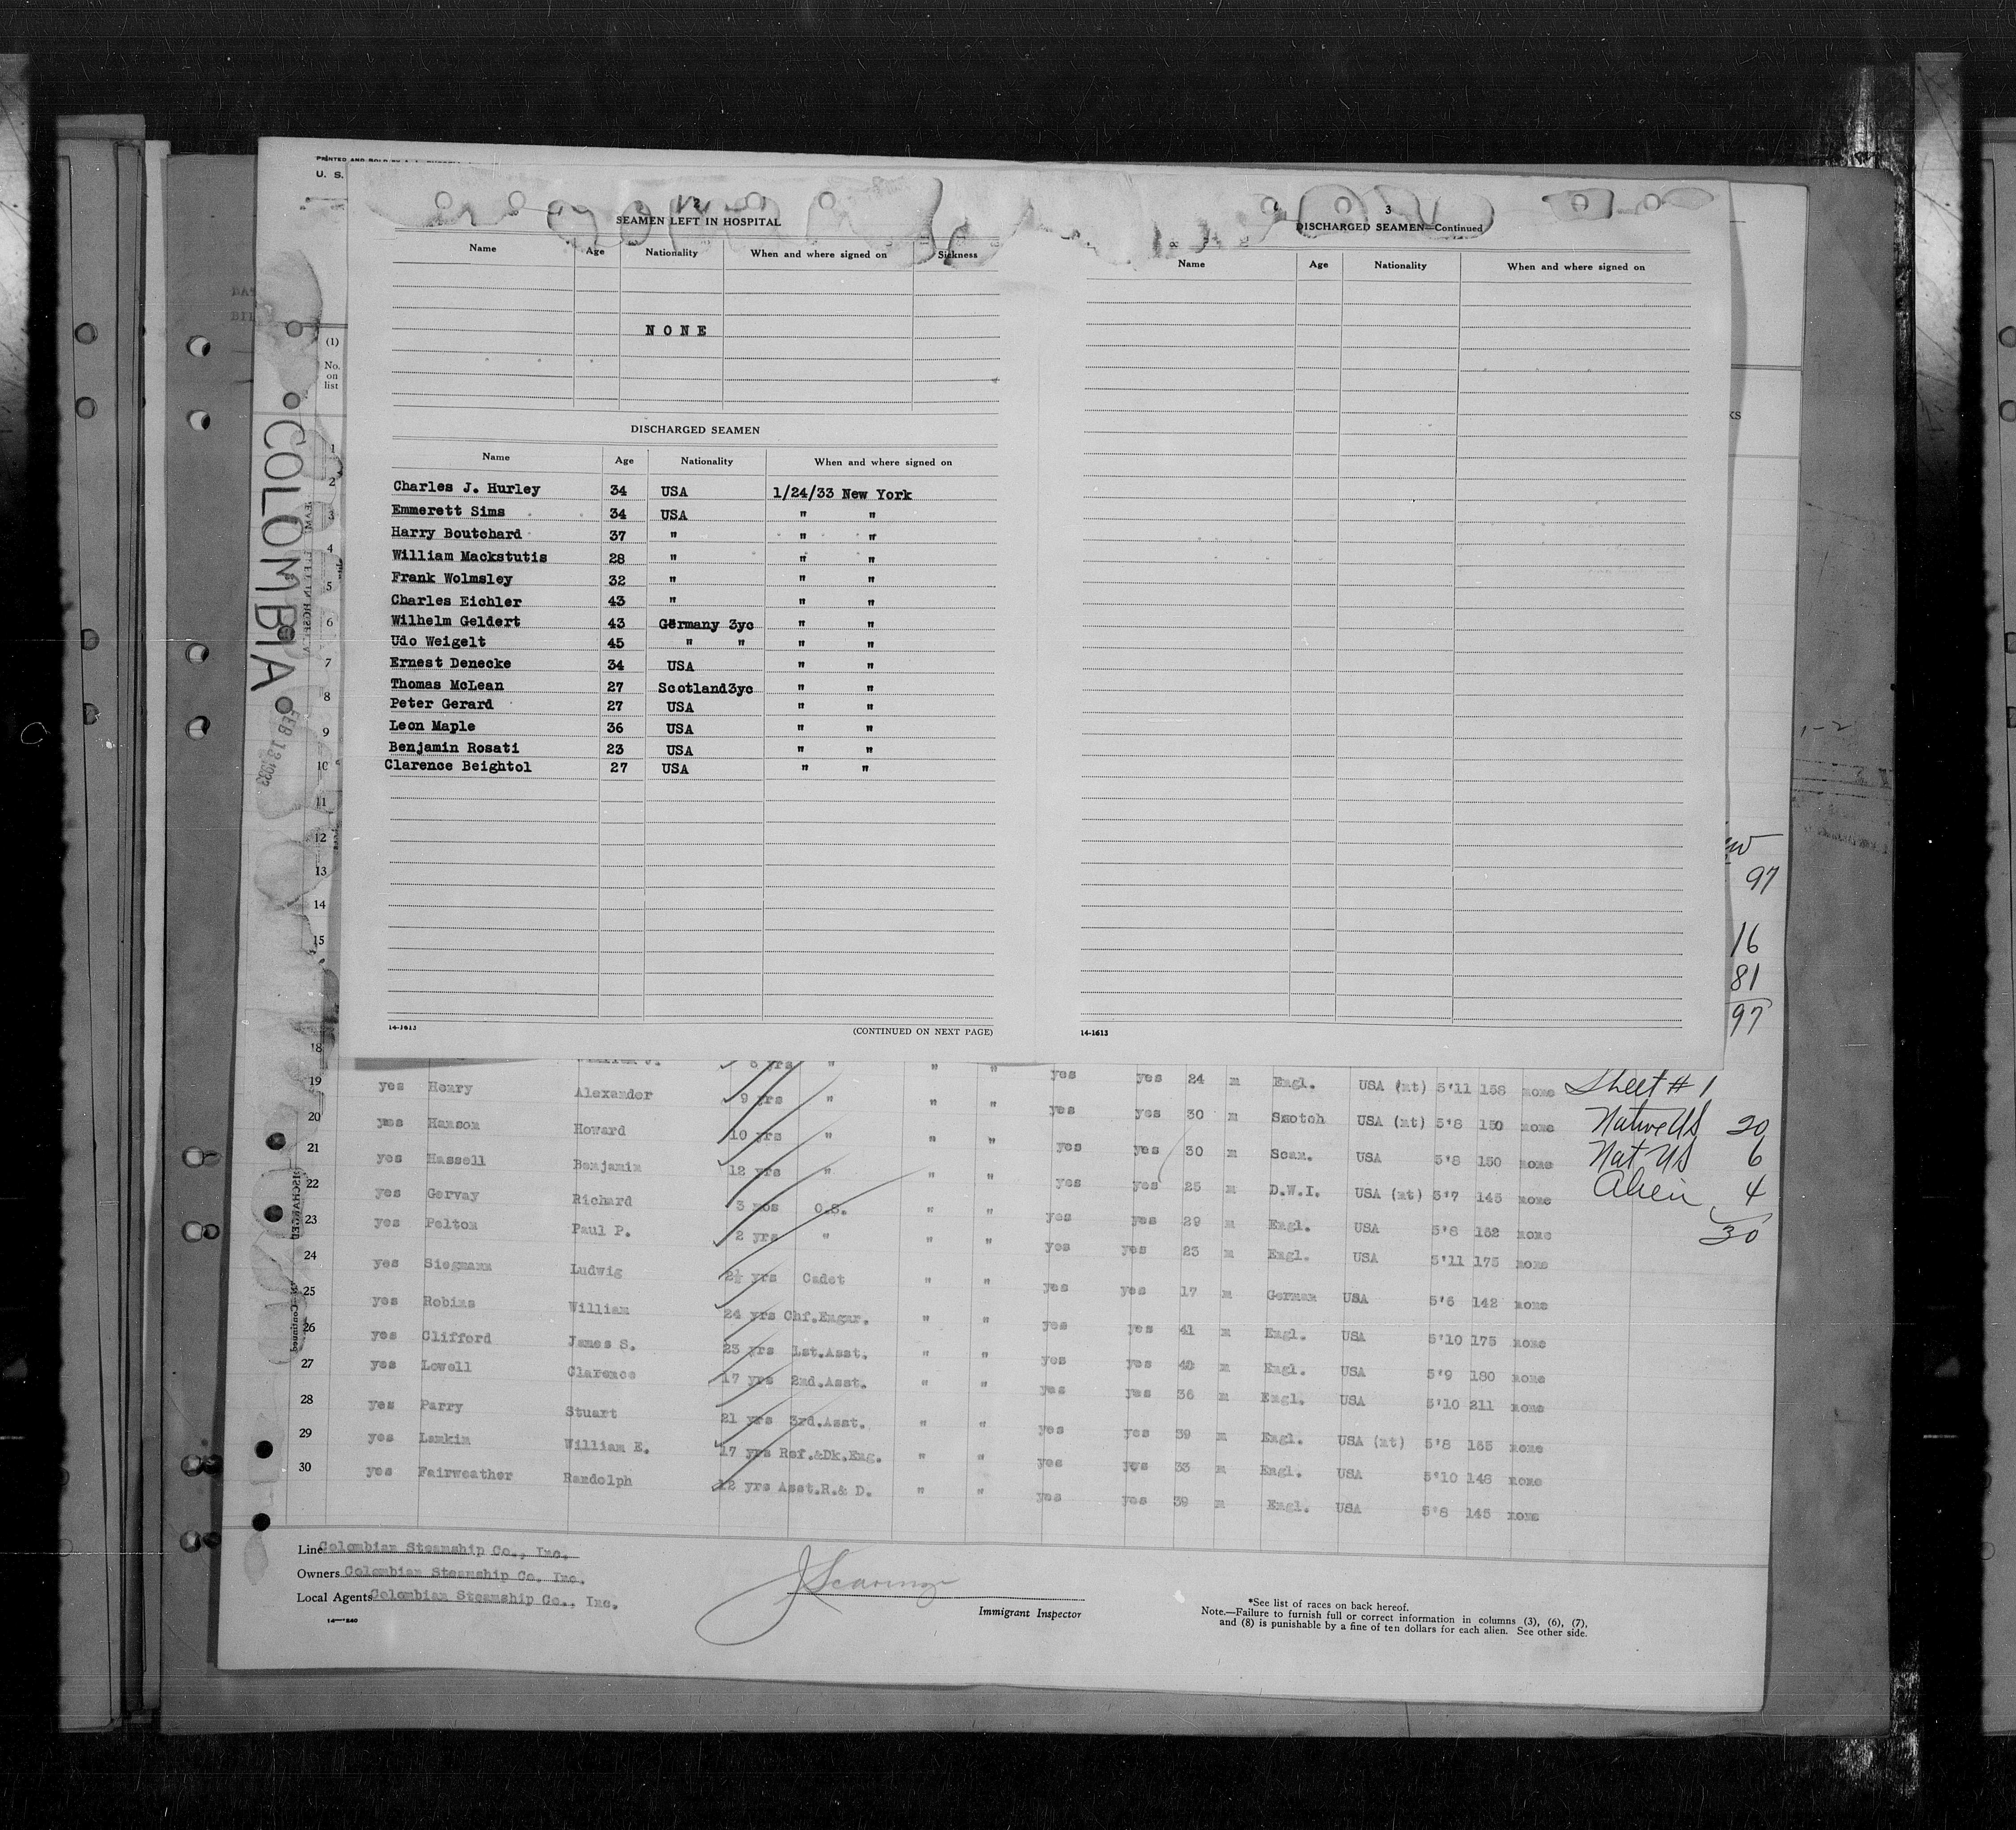 U. S.
SEAMEN LEFT IN HOSPITAL
Name Age Nationality When and where signed on Sickness
NONE
DISCHARGED SEAMEN
Name Age Nationality When and where signed on
Charles J. Hurley 34 USA 1/24/33 New York
Emmerett Sims 34 USA " "
Harry Boutchard 37 " " "
William Mackstutis 28 " " "
Frank Wolmsley 32 " " "
Charles Eichler 43 " " "
Wilhelm Geldert 43 Germany 3yc " "
Udo Weigelt 45 " " " "
Ernest Denecke 34 USA " "
Thomas McLean 27 Scotland3yc " "
Peter Gerard 27 USA " "
Leon Maple 36 USA " "
Benjamin Rosati 23 USA " "
Clarence Beightol 27 USA " "
14-1613
(CONTINUED ON NEXT PAGE)
3
DISCHARGED SEAMEN—Continued
Name Age Nationality When and where signed on
14-1613
COLOMBIA
FEB 13 1933
(1)
No. on list
1
2
3
4
5
6
7
8
9
10
11
12
13
14
15
97
16
81
97
18
8 yrs " " "
19 yes Henry Alexander 9 yrs " " " yes yes 24 m Engl. USA (nt) 5'11 158 none
20 yes Hanson Howard 10 yrs " " " yes yes 30 m Smotch USA (nt) 5'8 150 none
21 yes Hassell Benjamin 12 yrs " " " yes yes 30 m Scan. USA 5'8 150 none
22 yes Gervay Richard 3 mos O.S. " " yes yes 25 m D.W.I. USA (nt) 5'7 145 none
23 yes Pelton Paul P. 2 yrs " " " yes yes 29 m Engl. USA 5'8 152 none
24 yes Siegmann Ludwig 2½ yrs Cadet " " yes yes 23 m Engl. USA 5'11 175 none
25 yes Robins William 24 yrs Chf.Engnr. " " yes yes 17 m German USA 5'6 142 none
26 yes Clifford James S. 23 yrs 1st.Asst. " " yes yes 41 m Engl. USA 5'10 175 none
27 yes Lowell Clarence 17 yrs 2nd.Asst. " " yes yes 48 m Engl. USA 5'9 180 none
28 yes Parry Stuart 21 yrs 3rd.Asst. " " yes yes 36 m Engl. USA 5'10 211 none
29 yes Lamkin William E. 17 yrs Ref.&Dk.Eng. " " yes yes 39 m Engl. USA (nt) 5'8 165 none
30 yes Fairweather Randolph 12 yrs Asst.R.& D. " " yes yes 33 m Engl. USA 5'10 148 none
yes yes 39 m Engl. USA 5'8 145 none
Sheet # 1
Native US 20
Nat US 6
Alien 4
30
Line Colombian Steamship Co., Inc.
Owners Colombian Steamship Co. Inc.
Local Agents Colombian Steamship Co., Inc.
Immigrant Inspector
*See list of races on back hereof.
Note.—Failure to furnish full or correct information in columns (3), (6), (7),
and (8) is punishable by a fine of ten dollars for each alien. See other side.